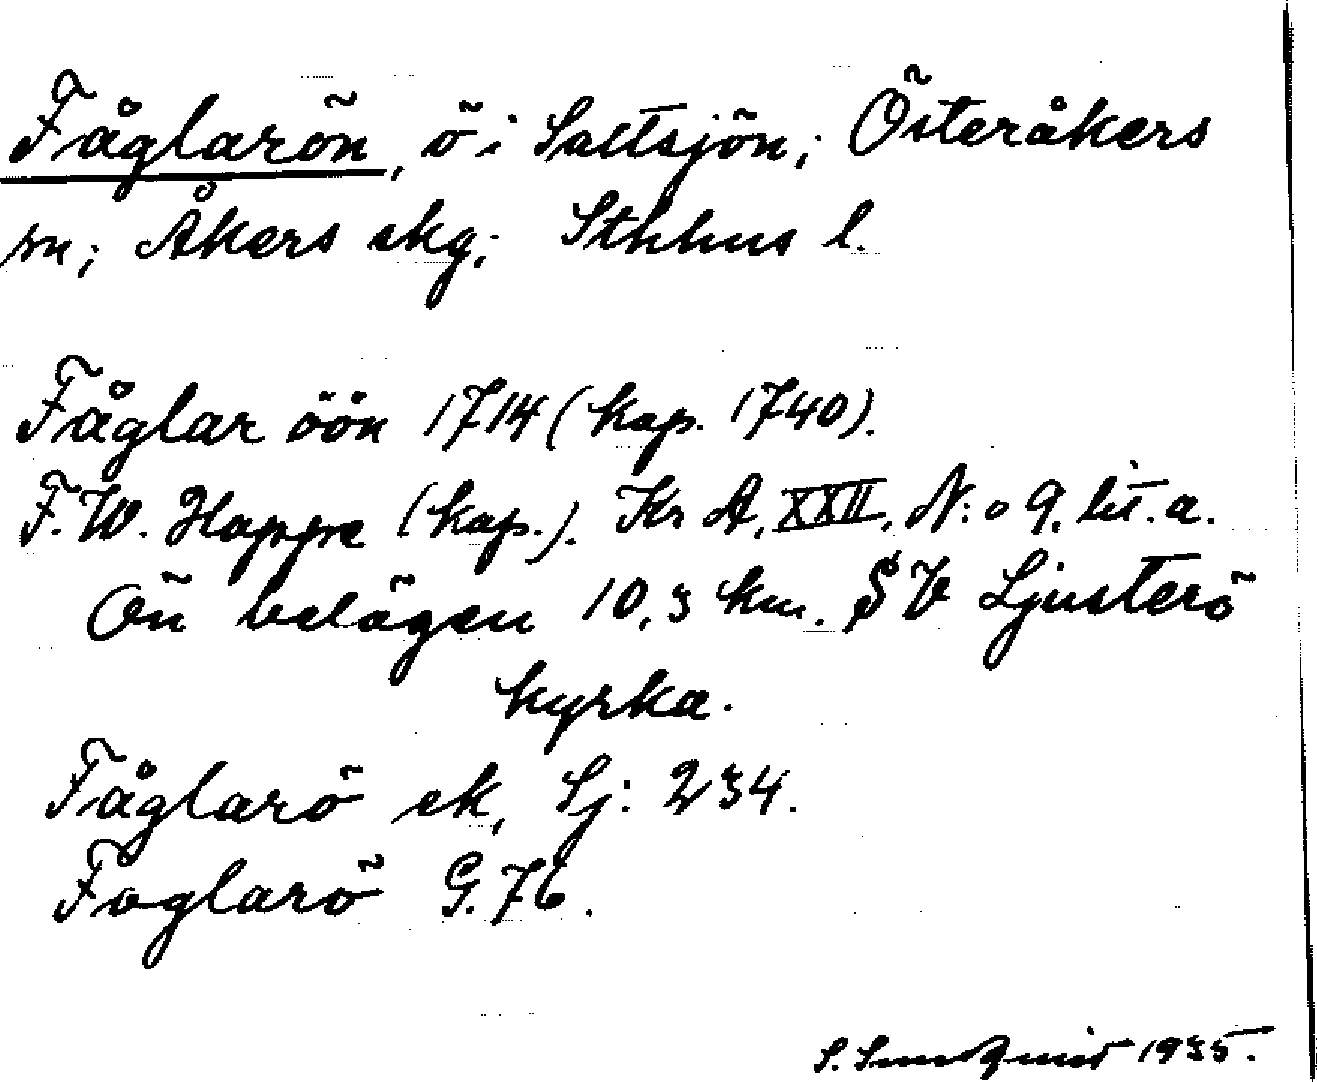 Fåglarön, ö i Saltsjön; Österåkers
sn; Åkers skg; Sthlms l.
Fåglar öön 1714 (kop. 1740).
F.W. Hoppe (kop.). Kr A, XXII, N:o 9. lit. a.
Ön belägen 10,3 km. SV Ljusterö
kyrka.
Fåglarö ek, Lj: 234.
Foglarö G. 76.
1935.